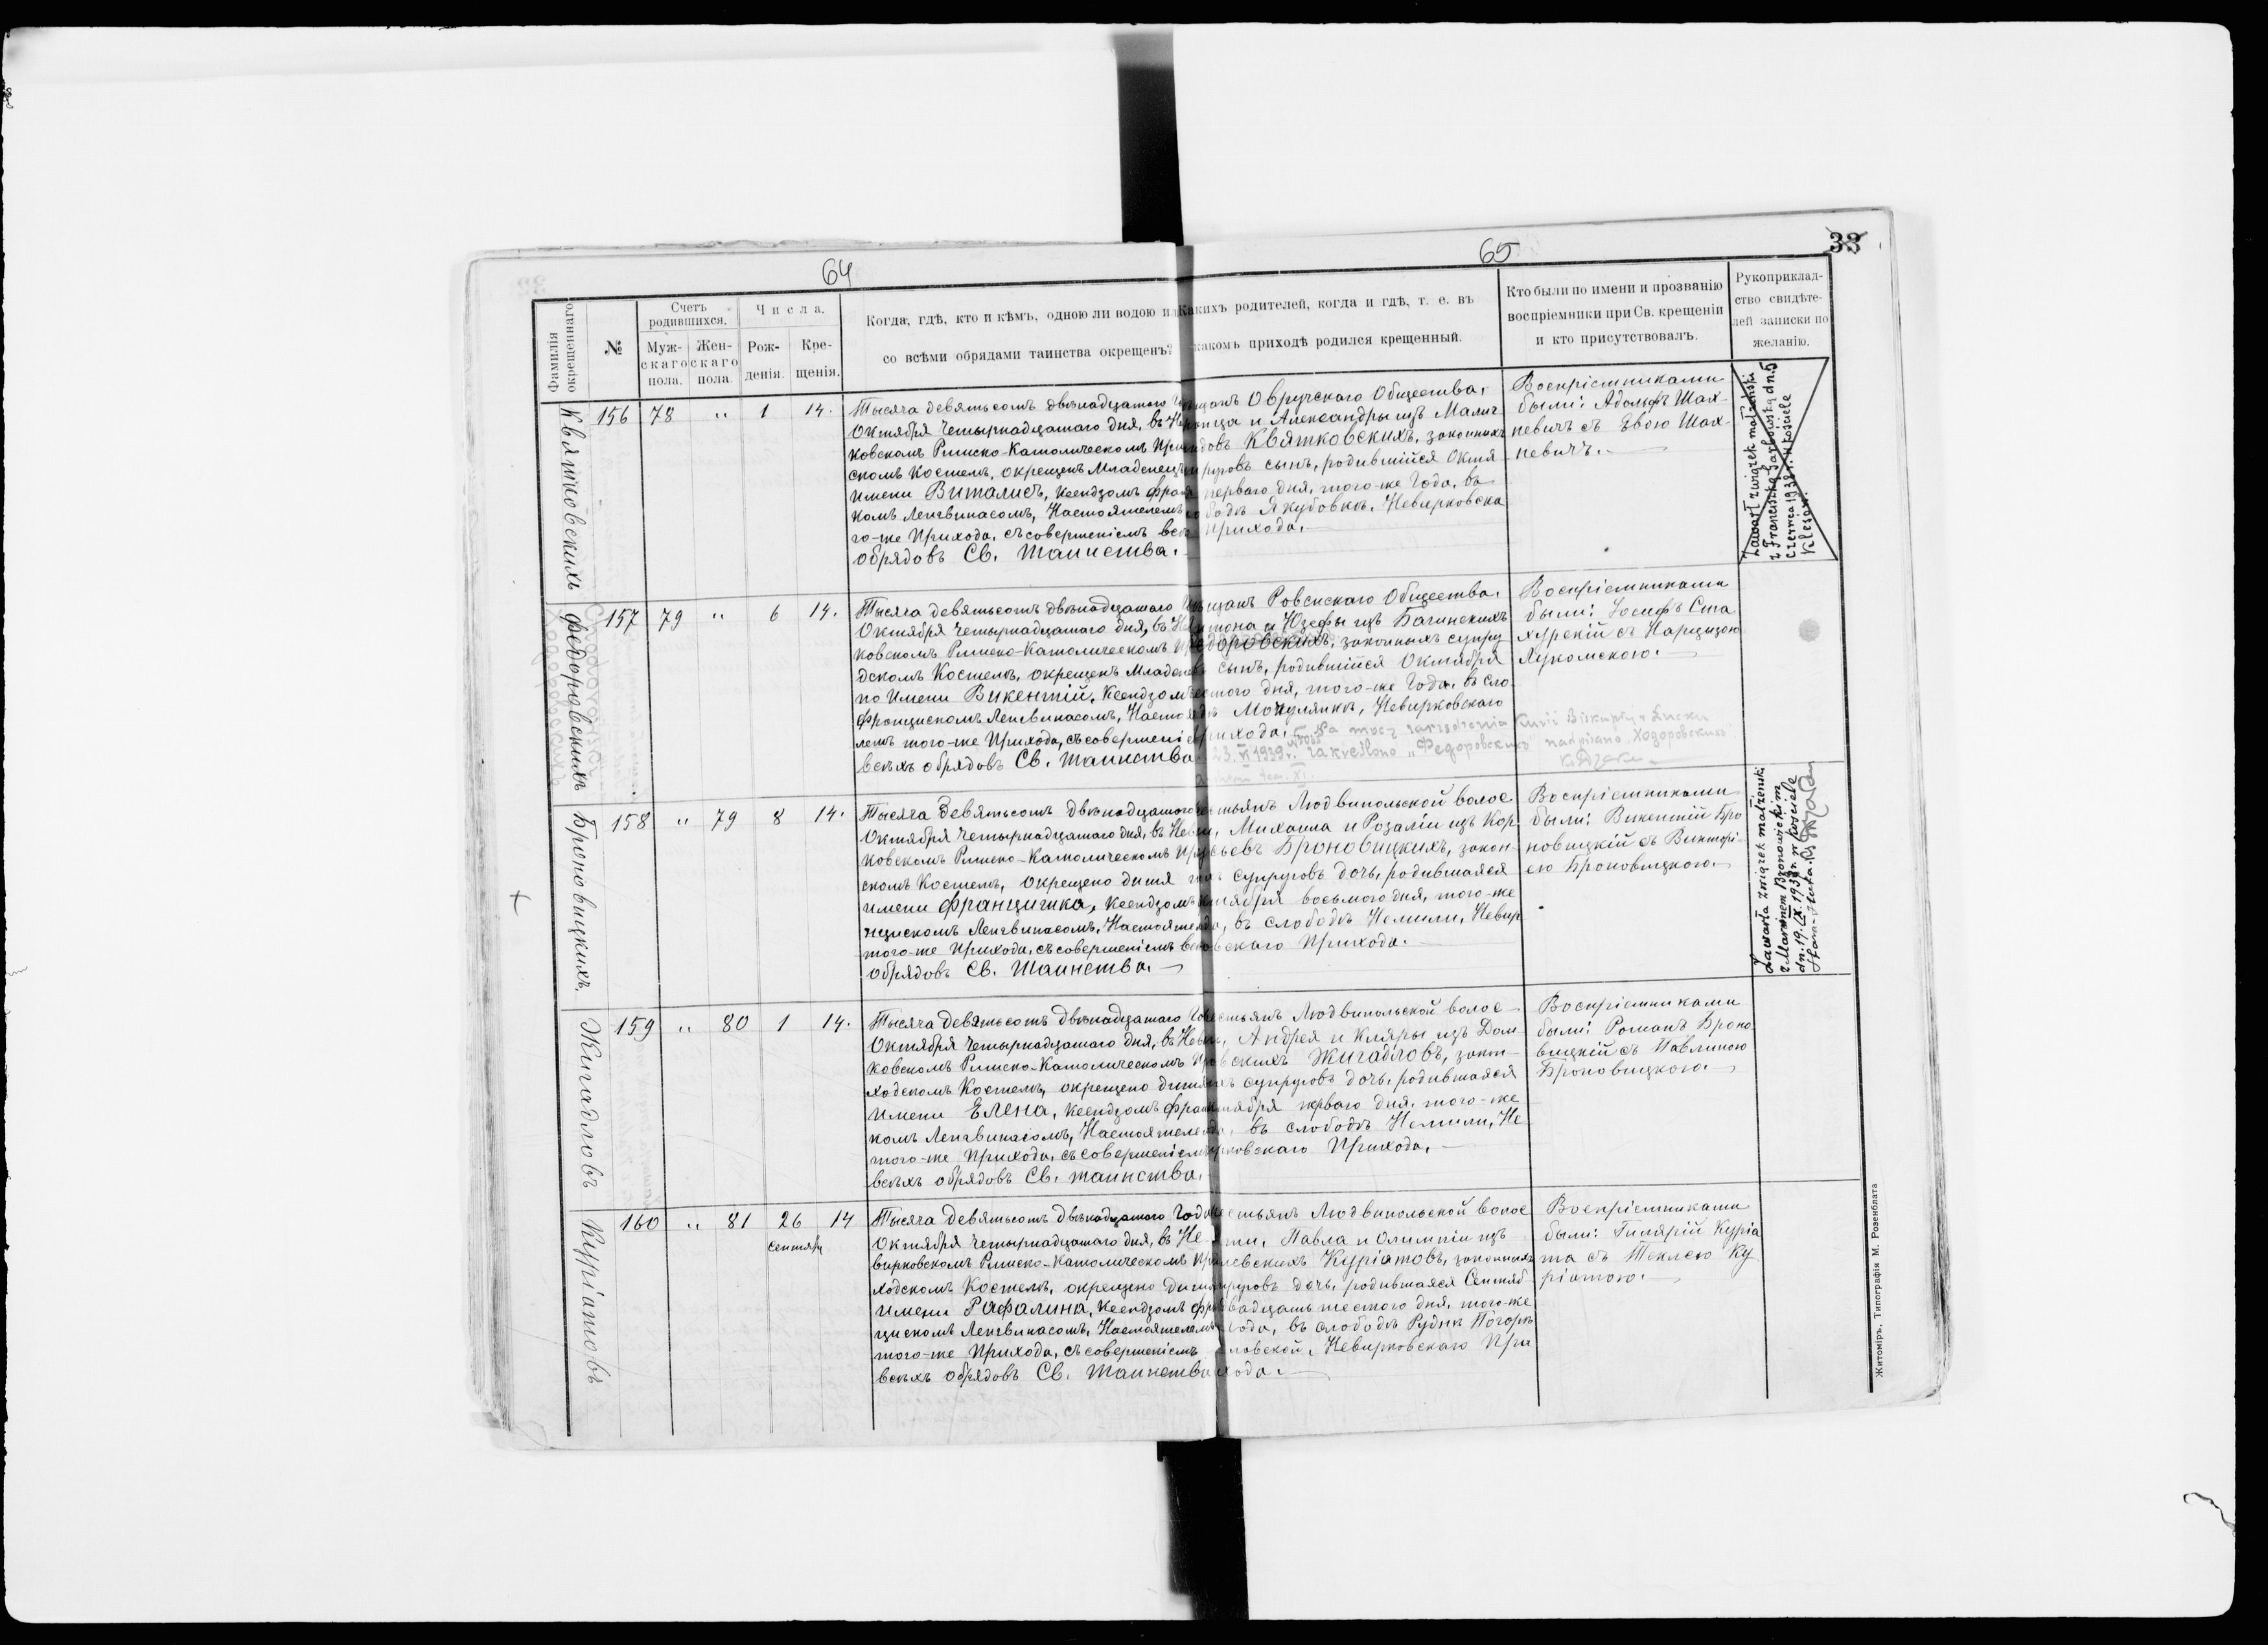 64
65
33
Фамилія окрещеннаго
№
Счетъ родившихся.
Муж-скаго пола.
Жен-скаго пола.
Числа.
Рож-денія.
Кре-щенія.
Когда, гдѣ, кто и кѣмъ, одною ли водою или
со всѣми обрядами таинства окрещенъ?
Какихъ родителей, когда и гдѣ, т. е. въ
какомъ приходѣ родился крещенный.
Кто были по имени и прозванію
воспріемники при Св. крещеніи
и кто присутствовалъ.
Рукоприклад-
ство свидѣте-
лей записки по
желанію.
Квятковскихъ
156 78 " 1 14.
Тысяча девятьсотъ двѣнадцатаго
Октября четырнадцатаго дня, въ
ковскомъ Римско-Католическомъ
скомъ Костелѣ, окрещенъ Младенецъ
имени Виталисъ, Ксендзомъ
комъ Ленгвинасомъ, Настоятелемъ
го-же Прихода, съ совершеніемъ
обрядовъ Св. Таинства.
Овручскаго Общества,
и Александры изъ Малич
Квятковскихъ, законныхъ
сынъ, родившійся Октя
перваго дня, того-же Года, въ
Якубовкѣ, Невирковска
Прихода.
Воспріемниками
были: Адольфъ Шах-
невичъ съ Евою Шах-
невичъ.
Zawarł związek małżeński
z Franciszką
czerwca 1938 r. w kościele
Klesów.
Федоровскихъ
157 79 " 6 14.
Тысяча девятьсотъ двѣнадцатаго
Октября четырнадцатаго дня, въ
ковскомъ Римско-Католическомъ
дскомъ Костелѣ, окрещенъ
по Имени Викентій, Ксендзомъ
Францискомъ Ленгвинасомъ,
лемъ того-же Прихода, съ
всѣхъ обрядовъ Св. таинства.
Ровенскаго Общества,
и Юзефы изъ Багинскихъ
законныхъ супру
сынъ, родившійся Октября
дня, того-же Года, въ сло
Невирковскаго
Прихода.
Na mocy zarządzenia Kurii Biskupiej w Łucku
23.VI 1939 r. zakreślono „Федоровскихъ" nadpisano „Ходоровскихъ"
Воспріемниками
были: Іосифъ Ста
хурскій съ Нарцизою
Лукомскою.
Броновицкихъ.
158 " 79 8 14.
Тысяча девятьсотъ двѣнадцатаго
Октября четырнадцатаго дня, въ
ковскомъ Римско-Католическомъ
скомъ Костелѣ, окрещено дитя
имени Францишка, Ксендзомъ
нцискомъ Ленгвинасомъ,
того-же Прихода, съ совершеніемъ
обрядовъ Св. Таинства.
Людвипольской волос
Михаила и Розаліи изъ Кор
Броновицкихъ, закон-
супруговъ дочь, родившаяся
восьмого дня, того-же
въ слободѣ Немили, Невир
Прихода.
Воспріемниками
были: Викентій Бро
новицкій съ Викторі-
ею Броновицкою.
Zawarła związek małżeński
z Marianem Bronowickim
dn. 19.IX.1938 r. w kościele
Жигадловъ
159 " 80 1 14.
Тысяча девятьсотъ двѣнадцатаго
Октября четырнадцатаго дня, въ
ковскомъ Римско-Католическомъ
ходскомъ Костелѣ, окрещено
имени Елена, Ксендзомъ
комъ Ленгвинасомъ,
того-же Прихода, съ совершеніемъ
всѣхъ обрядовъ Св. таинства.
Людвипольской волос
Андрея и Кляры изъ Дом
Жигадловъ, закон-
супруговъ дочь, родившаяся
перваго дня, того-же
въ слободѣ Немили, Не
Прихода.
Воспріемниками
были: Романъ Броно
вицкій съ Павлиною
Броновицкою.
Куріатовъ
160 " 81 26 14
сентября
Тысяча девятьсотъ двѣнадцатаго Года
Октября четырнадцатаго дня, въ Не-
вирковскомъ Римско-Католическомъ
ходскомъ Костелѣ, окрещено
имени Рафалина, Ксендзомъ
цискомъ Ленгвинасомъ, Настоятелемъ
того-же Прихода, съ совершеніемъ
всѣхъ обрядовъ Св. Таинства
Людвипольской волос
Павла и Олимпіи изъ
Куріатовъ, законныхъ
дочь, родившаяся Сентяб
шестого дня, того-же
Года, въ слободѣ Рудня Погорѣ
ловской, Невирковскаго При
хода.
Воспріемниками
были: Гилярій Куріа
та съ Теклею Ку
ріатою.
Житоміръ, Типографія М. Розенблата